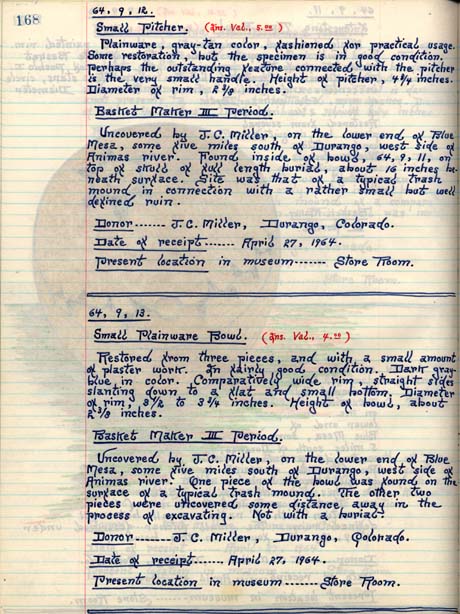 168
64, 9, 12.
Small Pitcher. (Ins. Val., 5.00)
Plainware, gray-tan color, fashioned for practical usage.
Some restoration, but the specimen is in good condition.
Perhaps the outstanding feature connected with the pitcher
is the very small handle. Height of pitcher, 4 4/8 inches.
Diameter of rim, 2 1/8 inches.
Basket Maker III Period.
Uncovered by J. C. Miller, on the lower end of Blue
Mesa, some five miles south of Durango, west side of
Animas river. Found inside of bowl, 64, 9, 11, on
top of skull of full length burial, about 16 inches be-
neath surface. Site was that of a typical trash
mound in connection with a rather small but well
defined ruin.
Donor------- J. C. Miller, Durango, Colorado.
Date of receipt------ April 27, 1964.
Present location in museum------- Store Room.
64, 9, 13.
Small Plainware Bowl. (Ins. Val., 4.00)
Restored from three pieces, and with a small amount
of plaster work. In fairly good condition. Dark gray-
blue in color. Comparatively wide rim, straight sides
slanting down to a flat and small bottom. Diameter
of rim, 3 1/2 to 3 3/4 inches. Height of bowl, about
2 3/8 inches.
Basket Maker III Period.
Uncovered by J. C. Miller, on the lower end of Blue
Mesa, some five miles south of Durango, west side of
Animas river. One piece of the bowl was found on the
surface of a typical trash mound. The other two
pieces were uncovered some distance away in the
process of excavating. Not with a burial.
Donor------- J. C. Miller, Durango, Colorado.
Date of receipt------ April 27, 1964.
Present location in museum------ Store Room.